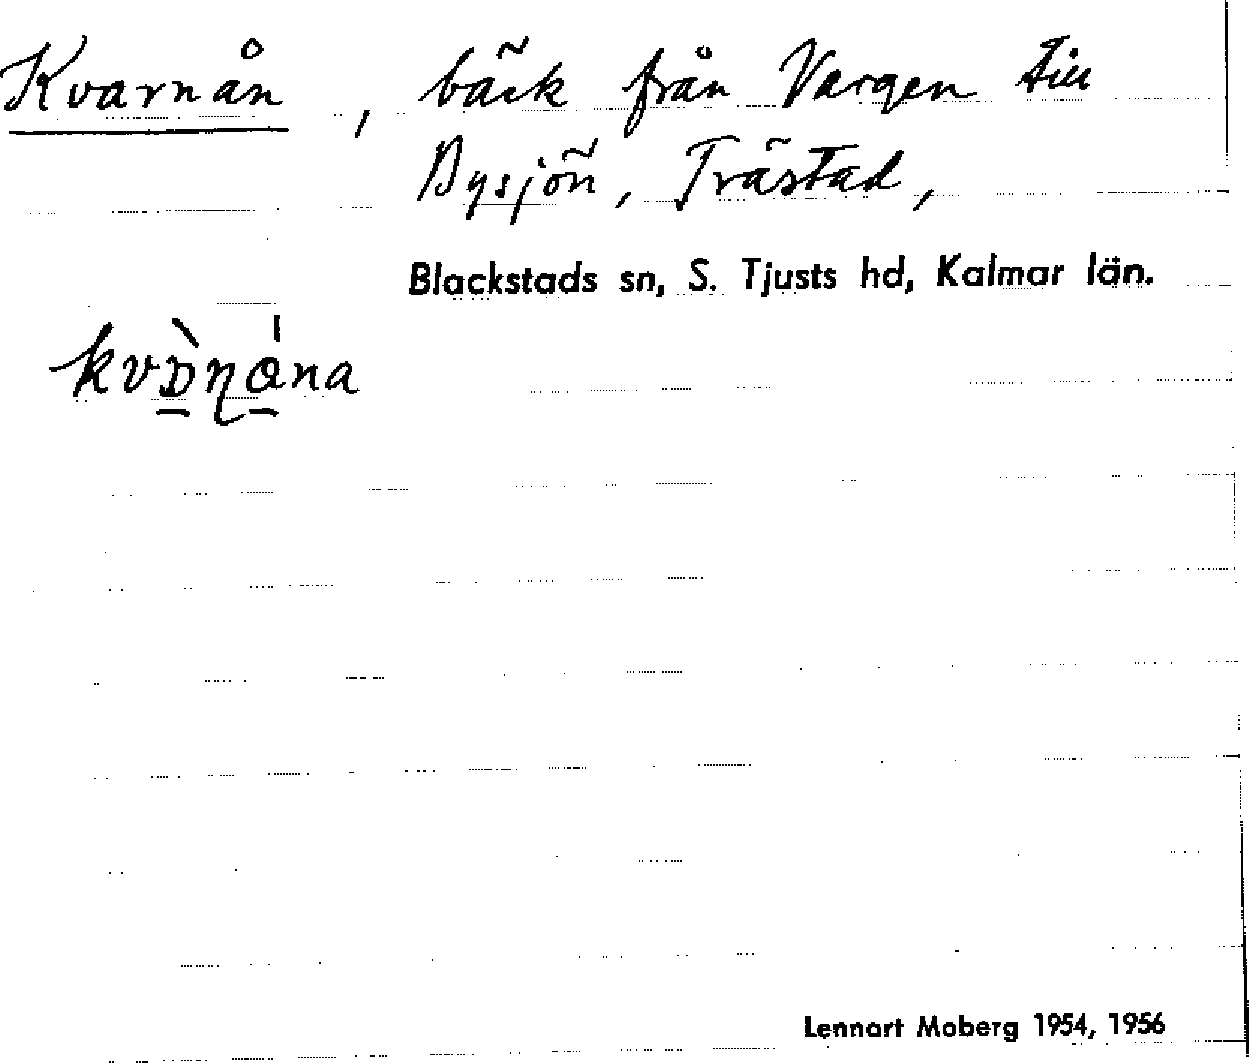 Kvarnån, bäck från Vargen till
Bysjön, Trästad,
Blackstads sn, S. Tjusts hd, Kalmar län.
Lennart Moberg 1954, 1956